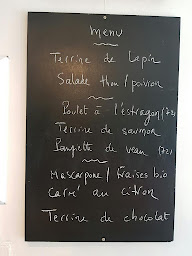 menu
Terrine de Lapin
Salade thon/poivron
Poulet à l'estragon (
Terrine de saumon
Paupiette de veau (
Mascarpone/fraises bio
Carré au citron
Terrine de chocolat